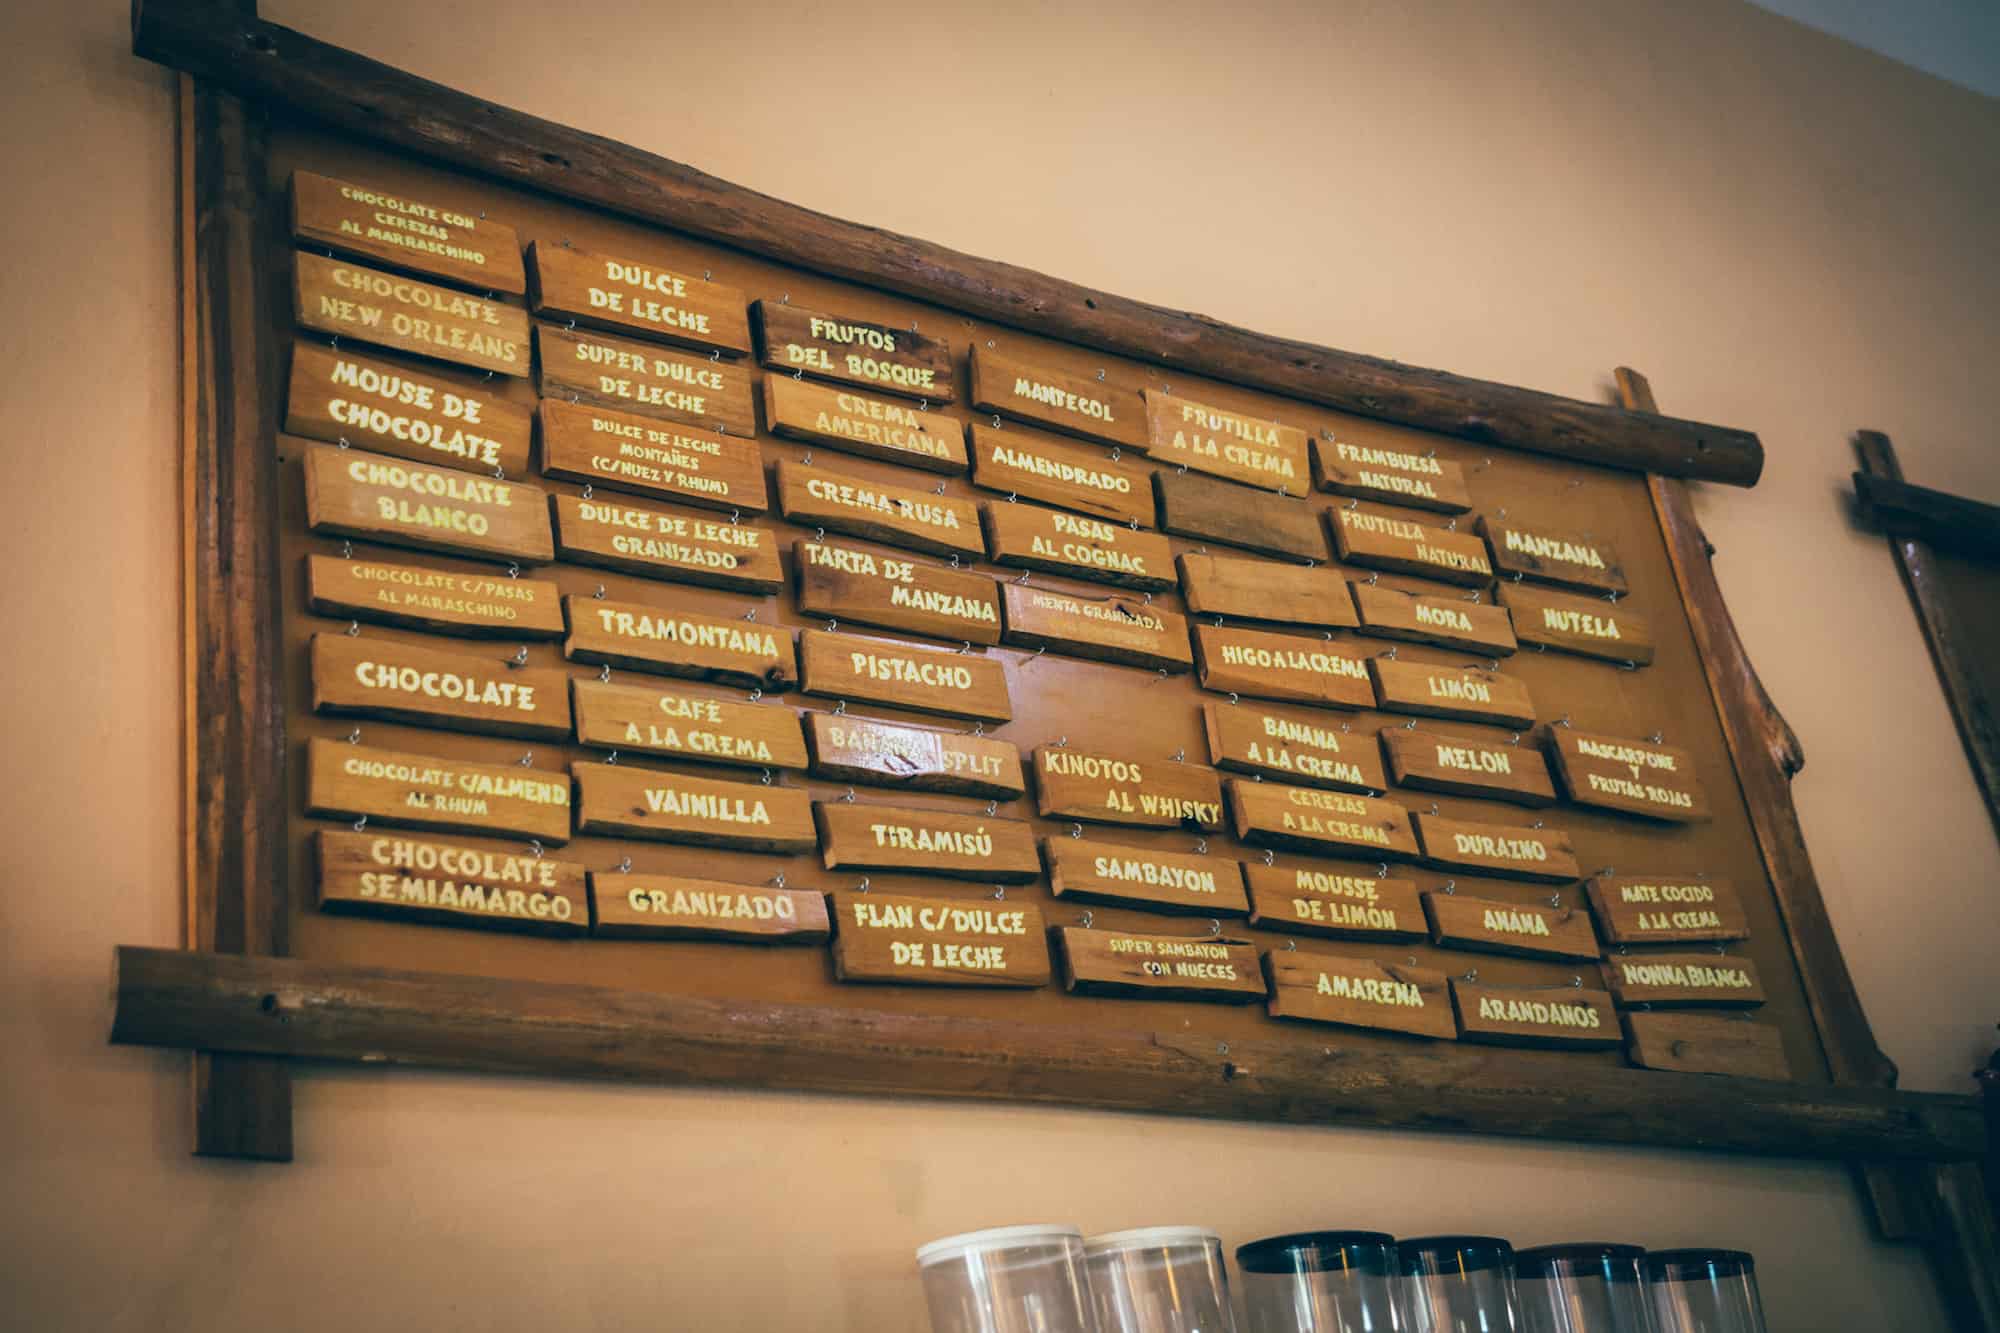 CHOCOLATE CON
CEREZAS
AL MARRASCHINO
CHOCOLATE
NEW ORLEANS
MOUSE DE
CHOCOLATE
CHOCOLATE
BLANCO
CHOCOLATE C/PASAS
AL MARASCHINO
CHOCOLATE
CHOCOLATE C/ALMEND.
AL RHUM
CHOCOLATE
SEMIAMARGO
DULCE
DE LECHE
SUPER DULCE
DE LECHE
DULCE DE LECHE
MONTAÑES
(C/NUEZ Y RHUM)
DULCE DE LECHE
GRANIZADO
TRAMONTANA
CAFÉ
A LA CREMA
VAINILLA
GRANIZADO
FRUTOS
DEL BOSQUE
CREMA
AMERICANA
CREMA RUSA
TARTA DE
MANZANA
PISTACHO
BANANA SPLIT
TIRAMISÚ
FLAN C/DULCE
DE LECHE
MANTECOL
ALMENDRADO
PASAS
AL COGNAC
MENTA GRANIZADA
KINOTOS
AL WHISKY
SAMBAYON
SUPER SAMBAYON
CON NUECES
FRUTILLA
A LA CREMA
HIGO A LA CREMA
BANANA
A LA CREMA
CEREZAS
A LA CREMA
MOUSSE
DE LIMÓN
AMARENA
FRAMBUESA
NATURAL
FRUTILLA
NATURAL
MORA
LIMÓN
MELON
DURAZNO
ANÁNA
ARANDANOS
MANZANA
NUTELA
MASCARPONE
Y
FRUTAS ROJAS
MATE COCIDO
A LA CREMA
NONNA BIANCA